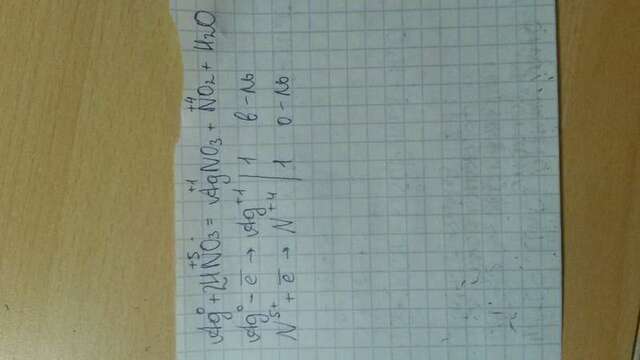 Ag⁰ + 2HN⁺⁵O₃ = Ag⁺¹NO₃ + N⁺⁴O₂ + H₂O
Ag⁰ - ē → Ag⁺¹ | 1 в-ль
N⁵⁺ + ē → N⁺⁴ | 1 о-ль